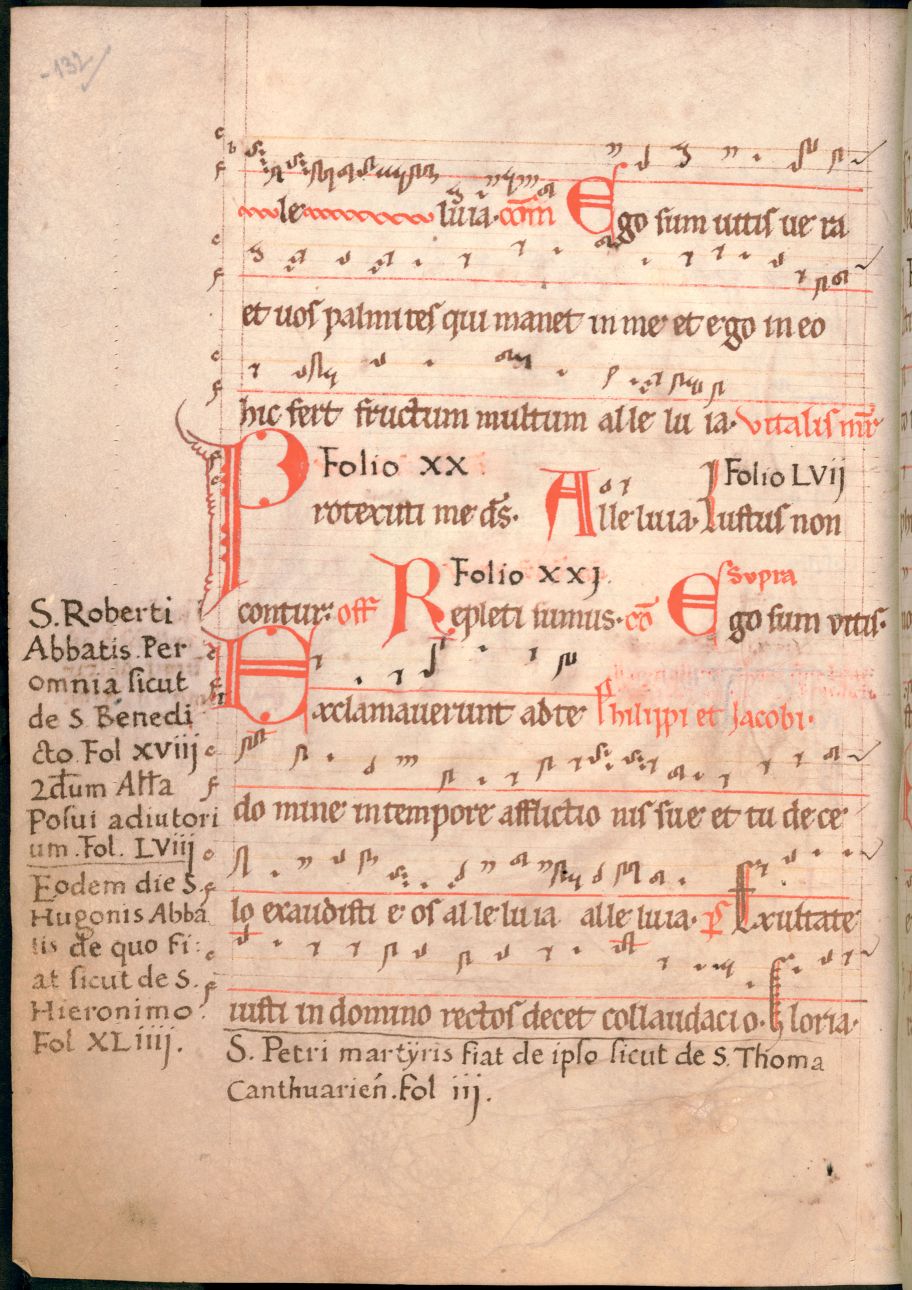 132
le luia. com Ego sum uitis ue ra
et uos palmites qui manet in me et ego in eo
hic fert fructum multum al le lu ia. vitalis mr̄
Folio XX
Folio LVij
Protexisti me ds̄. Alleluia. Iustus non
Folio XXJ.
Supra
contur. off Repleti sumus. cō Ego sum vitis.
Exclamauerunt ad te Philippi et Jacobi.
do mine in tempore afflictio nis sue et tu de ce
lo exaudisti e os al le lu ia alle luia. p̄s Exultate
iusti in domino rectos decet collaudacio. Gloria.
S. Petri martÿris fiat de ipso sicut de S. Thoma
Canthuarien̄. Fol iij.
S. Roberti
Abbatis. Per
omnia sicut
de S. Benedi
cto. Fol xviij
2dum Alla
Posui adiutori
um. Fol. LViij
Eodem die S.
Hugonis Abba
tis de quo fi:
at sicut de S.
Hieronimo.
Fol XLiiij.